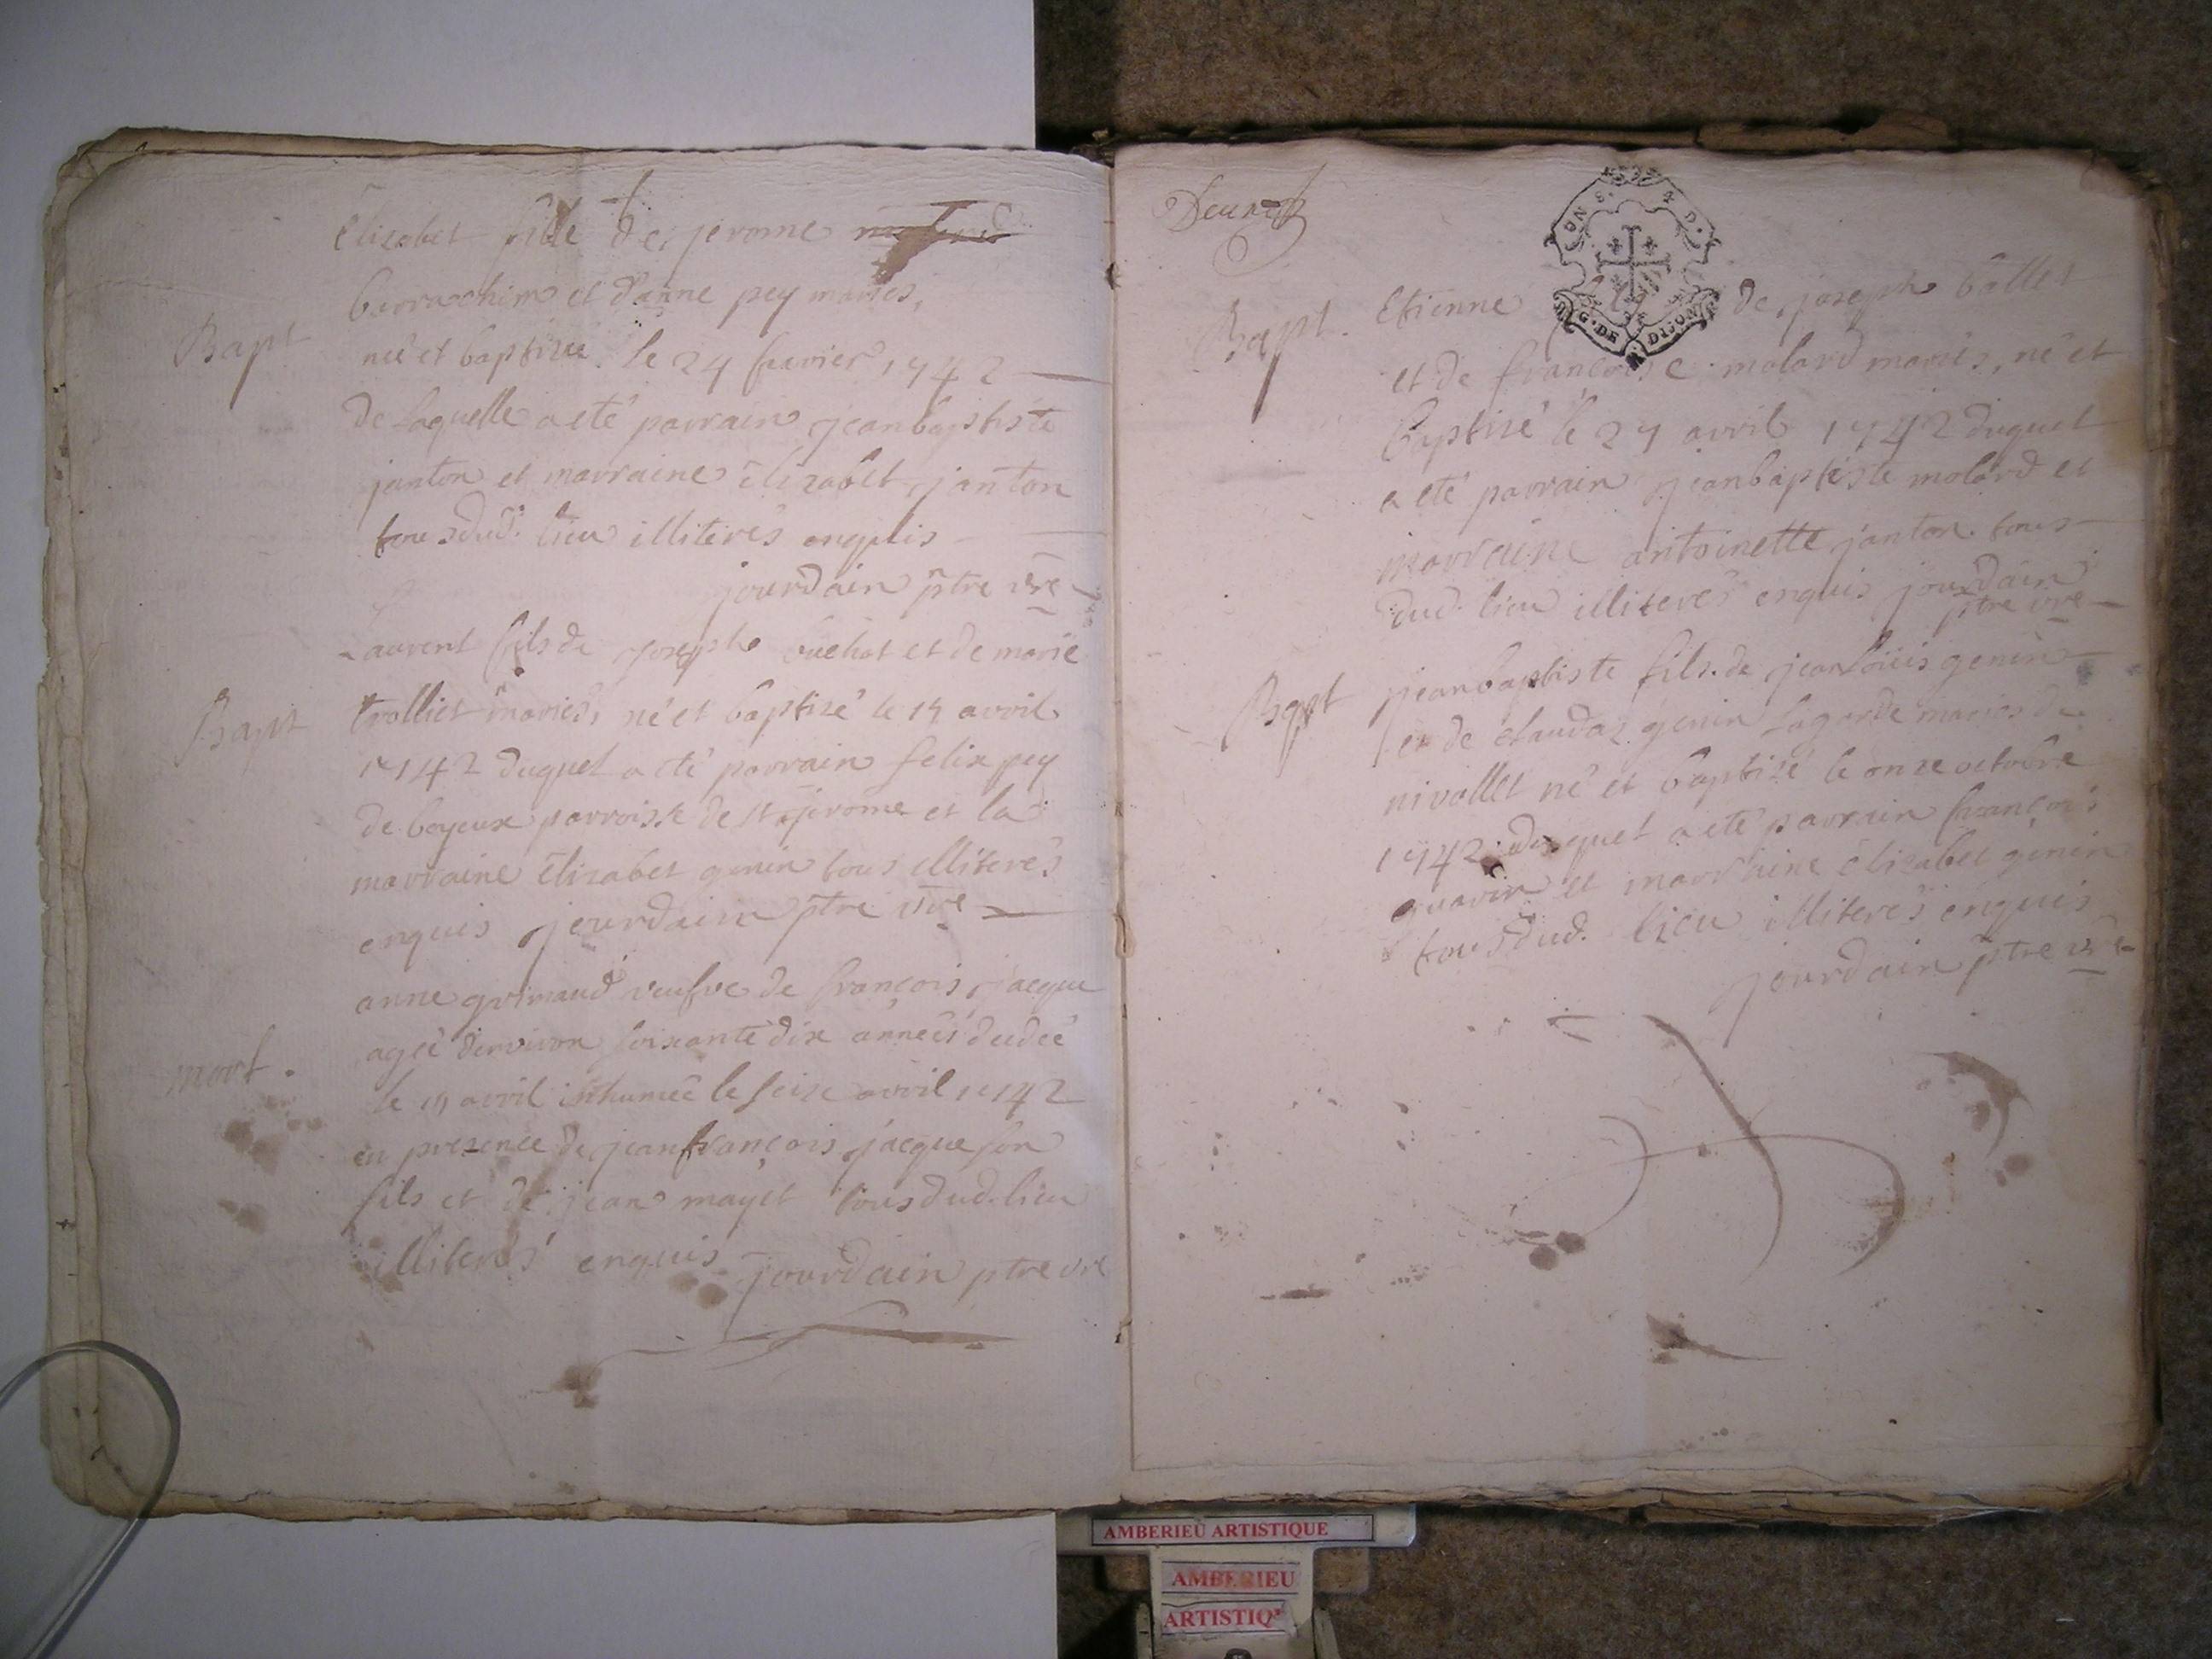 Elizabet fille de jerome
barrachim et d'anne pey mariés,
Bapt
née et baptisée le 24 fevrier 1742
de laquelle a eté parrain jean baptiste
janton et marraine elizabet janton
tous dud. lieu illiterés enquis
jourdain ptre vre
Laurent fils de joseph buchot et de marie
Bapt
trolliet mariés, né et baptisé le avril
1742 duquel a eté parrain felix pey
de boyeux parroisse de st jerome et la
marraine Elizabet genin tous illiterés
enquis jourdain ptre vre
anne grimaud veufve de françois jacque
agée denviron soixante dix années
mort.
le avril inhumée le seize avril 1742
en presence de jean françois jacque son
fils et de jean mayet tous dud. lieu
illiterés enquis jourdain ptre vre
Bapt. Etienne de joseph ballet
et de françoise molard mariés, né et
baptisé le 27 avril 1742 duquel
a eté parrain jean baptiste molard et
marraine antoinette janton tous
dud. lieu illiterés enquis jourdain
ptre vre
Bapt jean baptiste fils de jean loüis genin
et de claudaz genin lagarde mariés de
nivollet né et baptisé le onze octobre
1742 duquel a eté parrain françois
et marraine elizabet genin
tous dud. lieu illiterés enquis
jourdain ptre vre
G. DE DIJON
AMBERIEU ARTISTIQUE
AMBERIEU
ARTISTIQ